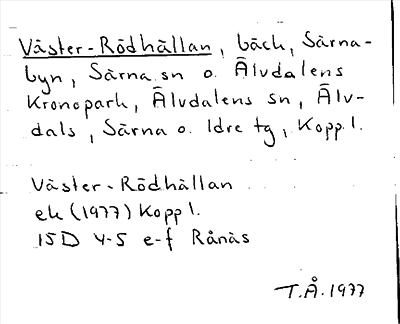 Väster-Rödhällan, bäck, Särna-
byn, Särna sn o. Älvdalens
Kronopark, Älvdalens sn, Älv-
dals, Särna o. Idre tg, Kopp.l.
Väster-Rödhällan
ek (1977) Kopp l.
15D 4-5 e-f Rånäs
T.Å. 1977